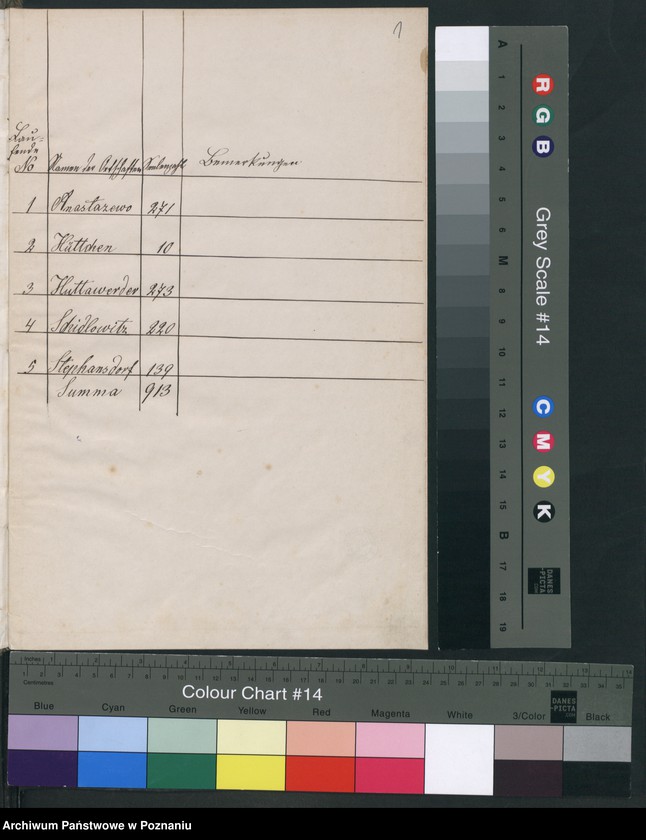 1
Lau-
fende
No Namen der Ortschaften Seelenzahl Bemerkungen
1 Anastazewo 271
2 Hüttchen 10
3 Huttawerder 273
4 Seidlowitz 220
5 Stephansdorf 139
Summa 913
A 1 2 3 4 5 6 M 8 9 10 11 12 13 14 15 B 17 18 19
R G B
Grey Scale #14
C M Y K
DANES
-PICTA
.COM
Inches 1 2 3 4 5 6 7 8 9 10 11 12 13 14
Centimetres 1 2 3 4 5 6 7 8 9 10 11 12 13 14 15 16 17 18 19 20 21 22 23 24 25 26 27 28 29 30 31 32 33 34 35
Colour Chart #14
DANES
-PICTA
.COM
Blue Cyan Green Yellow Red Magenta White 3/Color Black
Archiwum Państwowe w Poznaniu